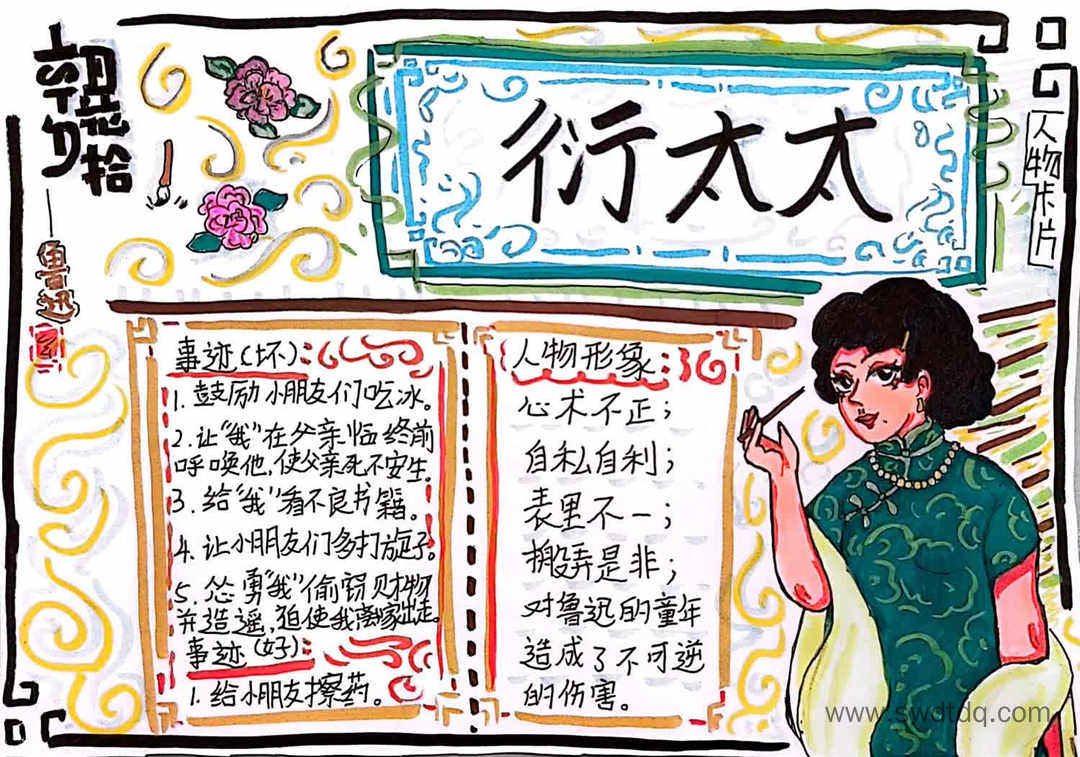 朝花夕拾
——鲁迅
衍太太
人物卡片
事迹(坏):
1. 鼓励小朋友们吃冰。
2. 让“我”在父亲临终前
呼唤他,使父亲死不安生。
3. 给“我”看不良书籍。
4. 让小朋友们多打旋子。
5. 怂勇“我”偷窃财物
并造谣,迫使我离家出走。
事迹(好):
1. 给小朋友擦药。
人物形象:
心术不正;
自私自利;
表里不一;
搬弄是非;
对鲁迅的童年
造成了不可逆
的伤害。
www.swdtdq.com